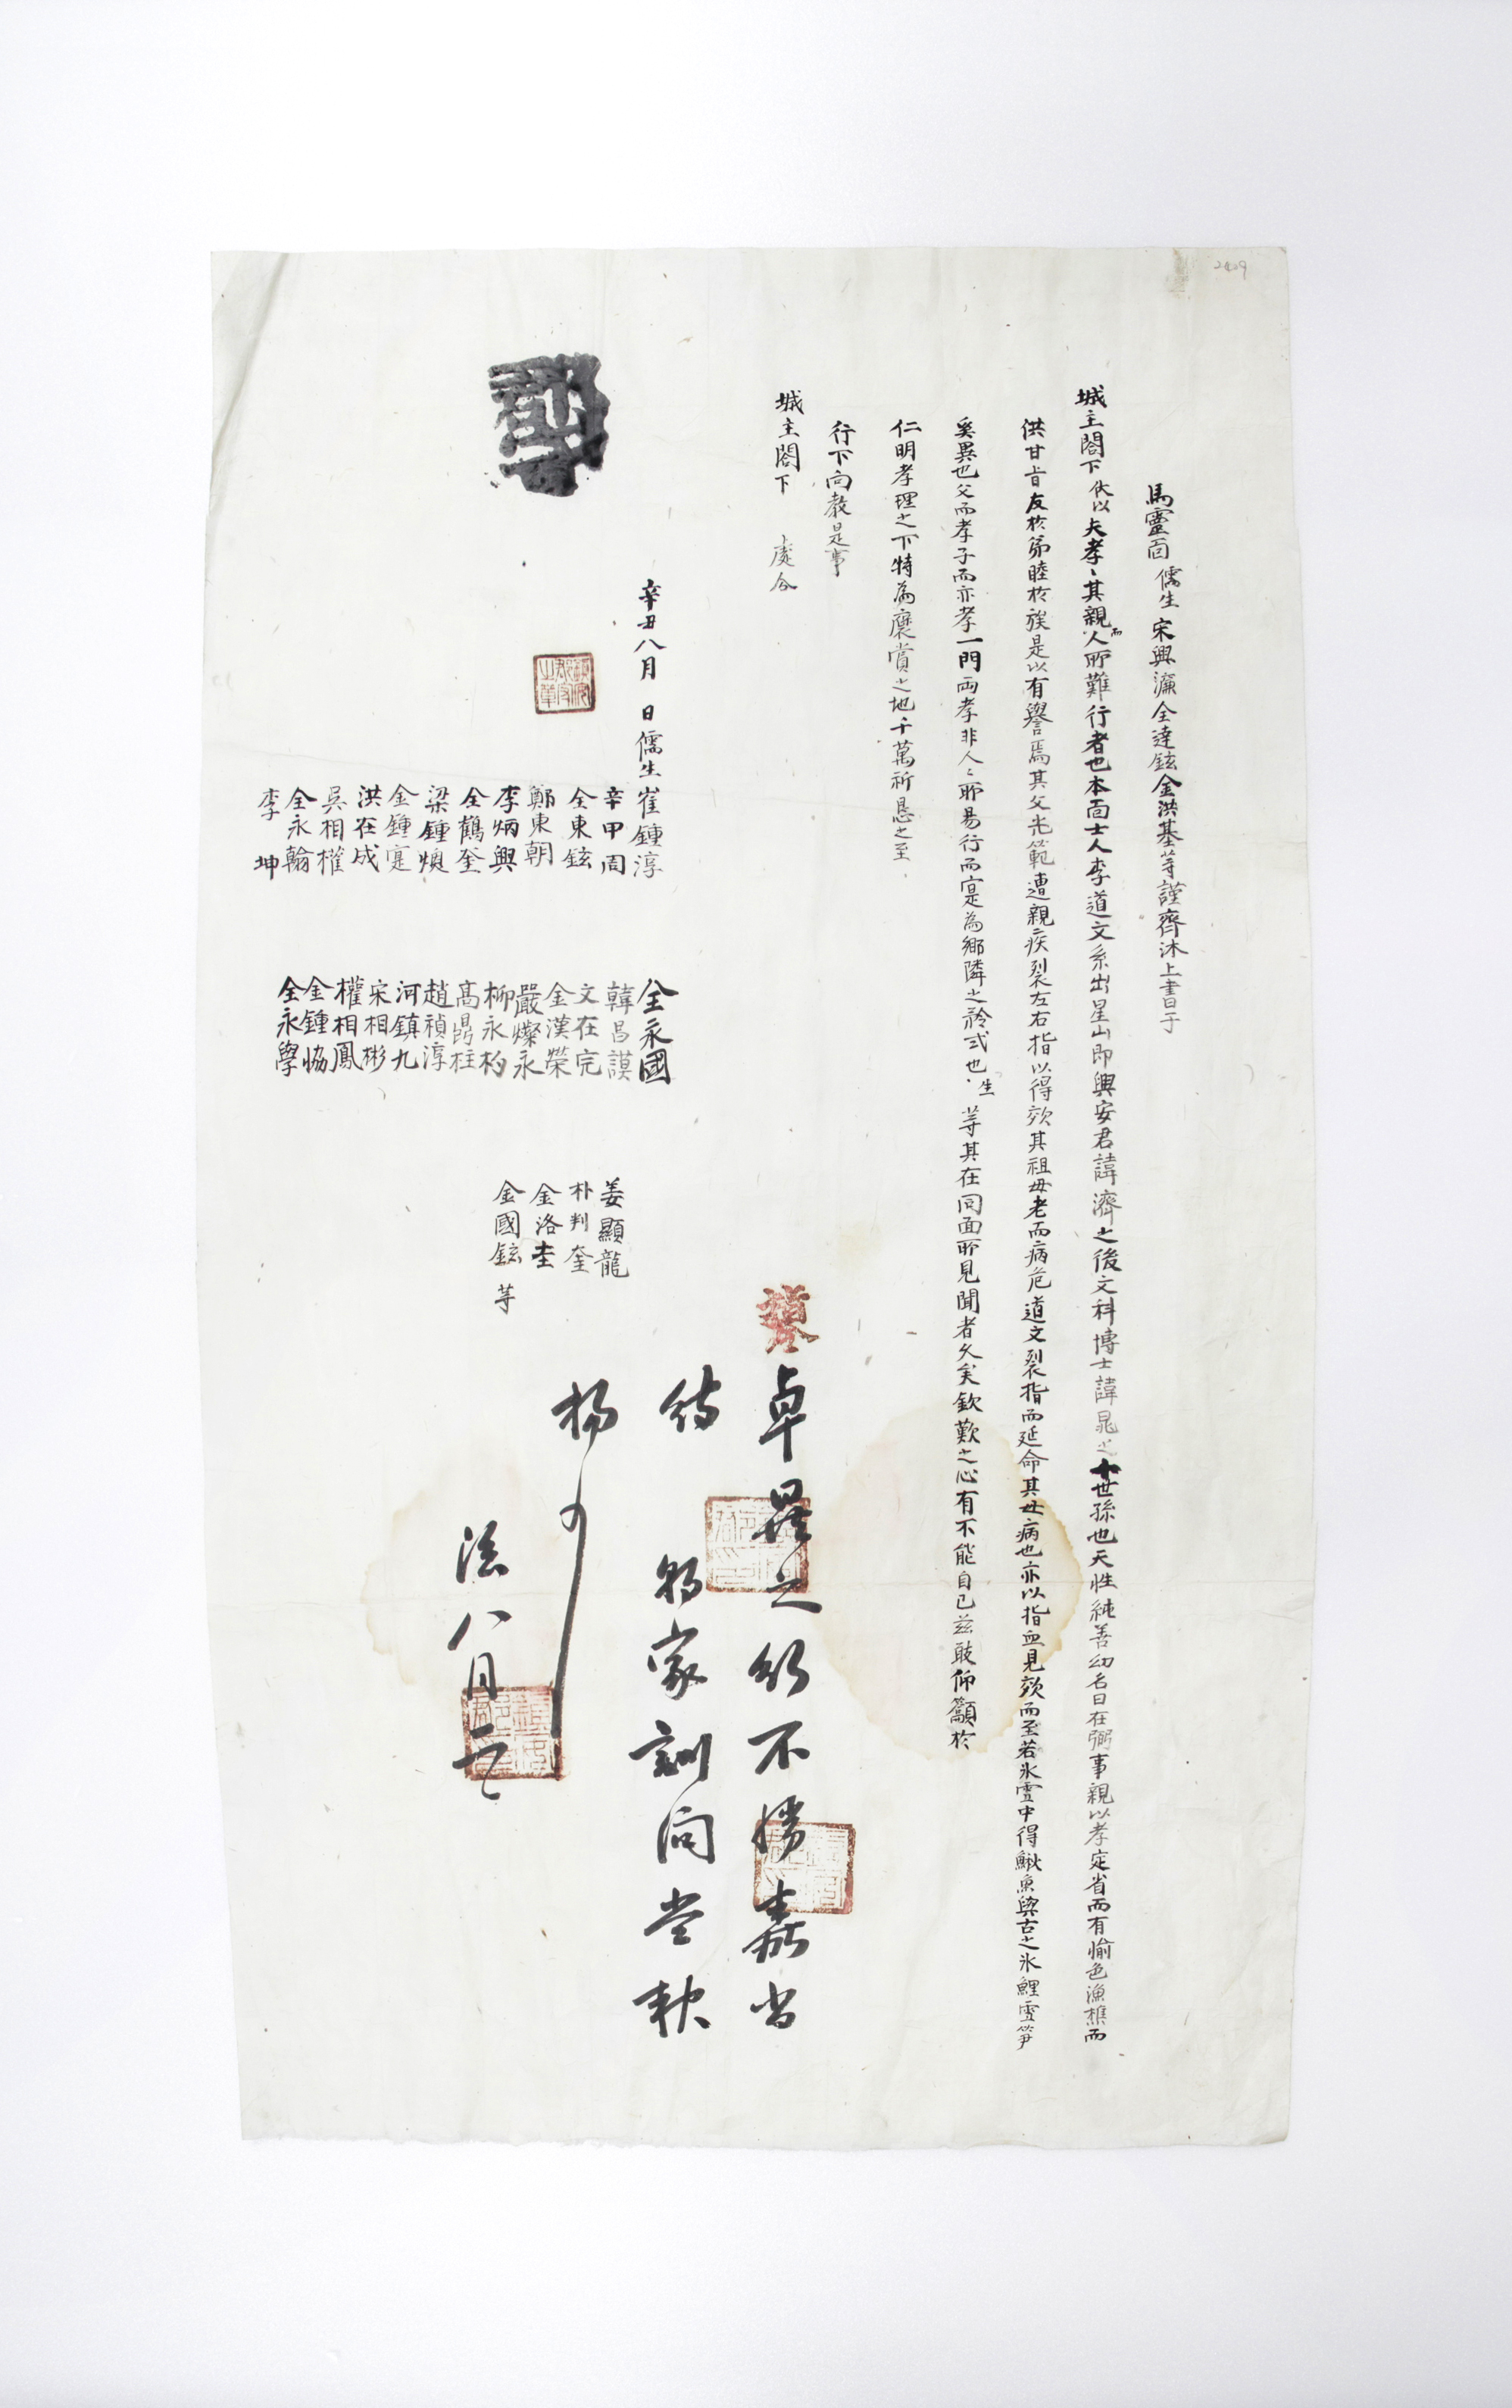 馬靈面儒生宋興濂全達鉉金洪基等謹齊沐上書于
城主閤下伏以夫孝〻其親而人所難行者也本面士人李道文系出星山即興安君諱濟之後文科博士諱晁之十世孫也天性純善幼名曰在弼事親以孝定省而有愉色漁樵而
供甘旨友於弟睦於族是以有譽焉其父光範遭親疾裂左右指以得效其祖母老而病危道文裂指而延命其母病也亦以指血見效而至若氷雪中得鰍魚與古之氷鯉雪笋
奚異也父而孝子而亦孝一門兩孝非人〻所易行而寔為鄉隣之矜式也生等其在同面所見聞者久矣欽歎之心有不能自已玆敢仰籲於
仁明孝理之下特為褒賞之地千萬祈恳之至
行下向教是事
城主閤下 處分
辛丑八月 日儒生崔鍾淳 全永國 姜顯龍
辛甲周 韓昌謨 朴判奎
全東鉉 文在完 金洛圭
鄭東朝 金漢榮 金國鉉 等
李炳興 嚴燦永
全鶴奎 柳永杓
梁鍾煥 高昺柱
金鍾寔 趙禎淳
洪在成 河鎮九
吳相權 宋相彬
全永翰 權相鳳
李坤 金鍾協
全永學
題
卓異之行不勝嘉尚
待 家訓向堂
八月
2429